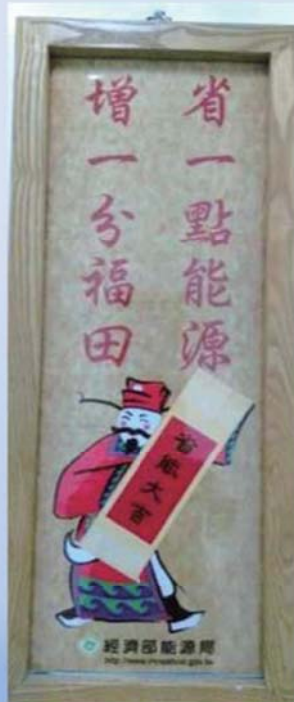 省一點能源
增一分福田
省能大吉
經濟部能源局